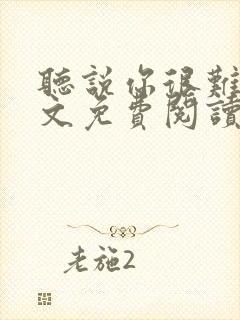 聽說你很難
文免費閱讀
老施2